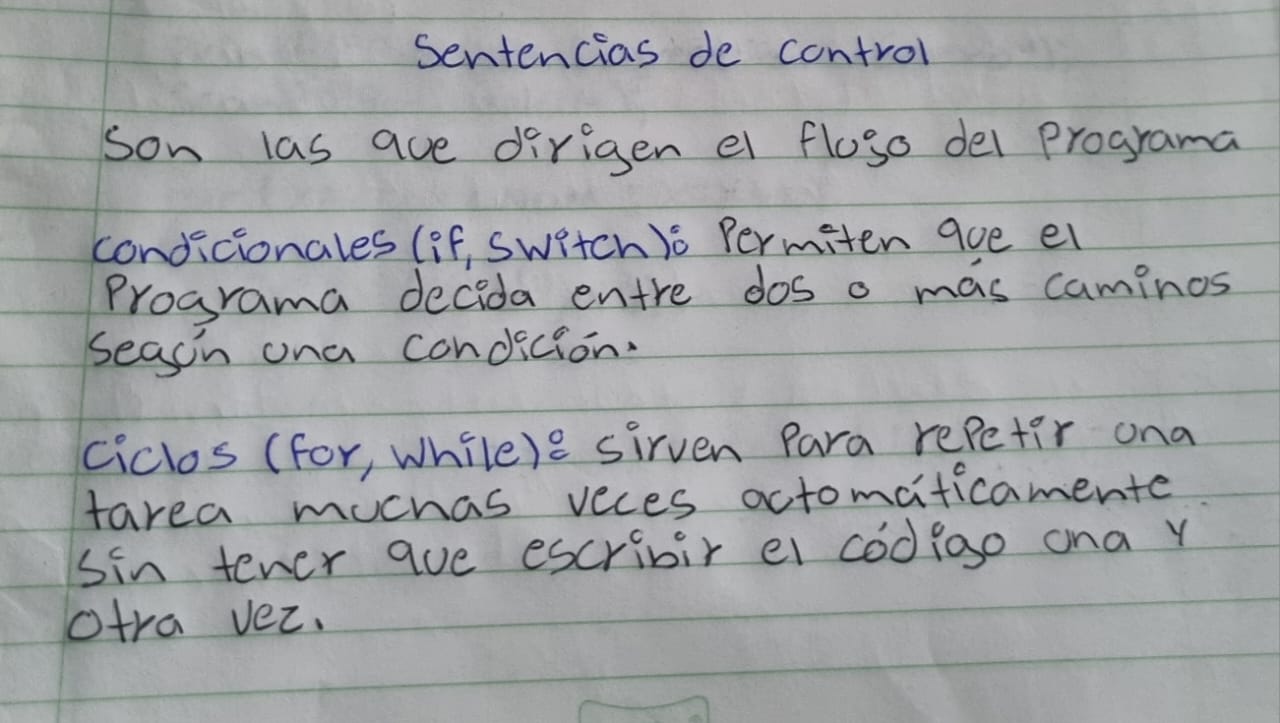 Sentencias de control
Son las que dirigen el flujo del Programa
Condicionales (if, switch): Permiten que el
Programa decida entre dos o más caminos
según una condición.
Ciclos (for, while): sirven Para repetir una
tarea muchas veces automáticamente
sin tener que escribir el código una y
otra vez.